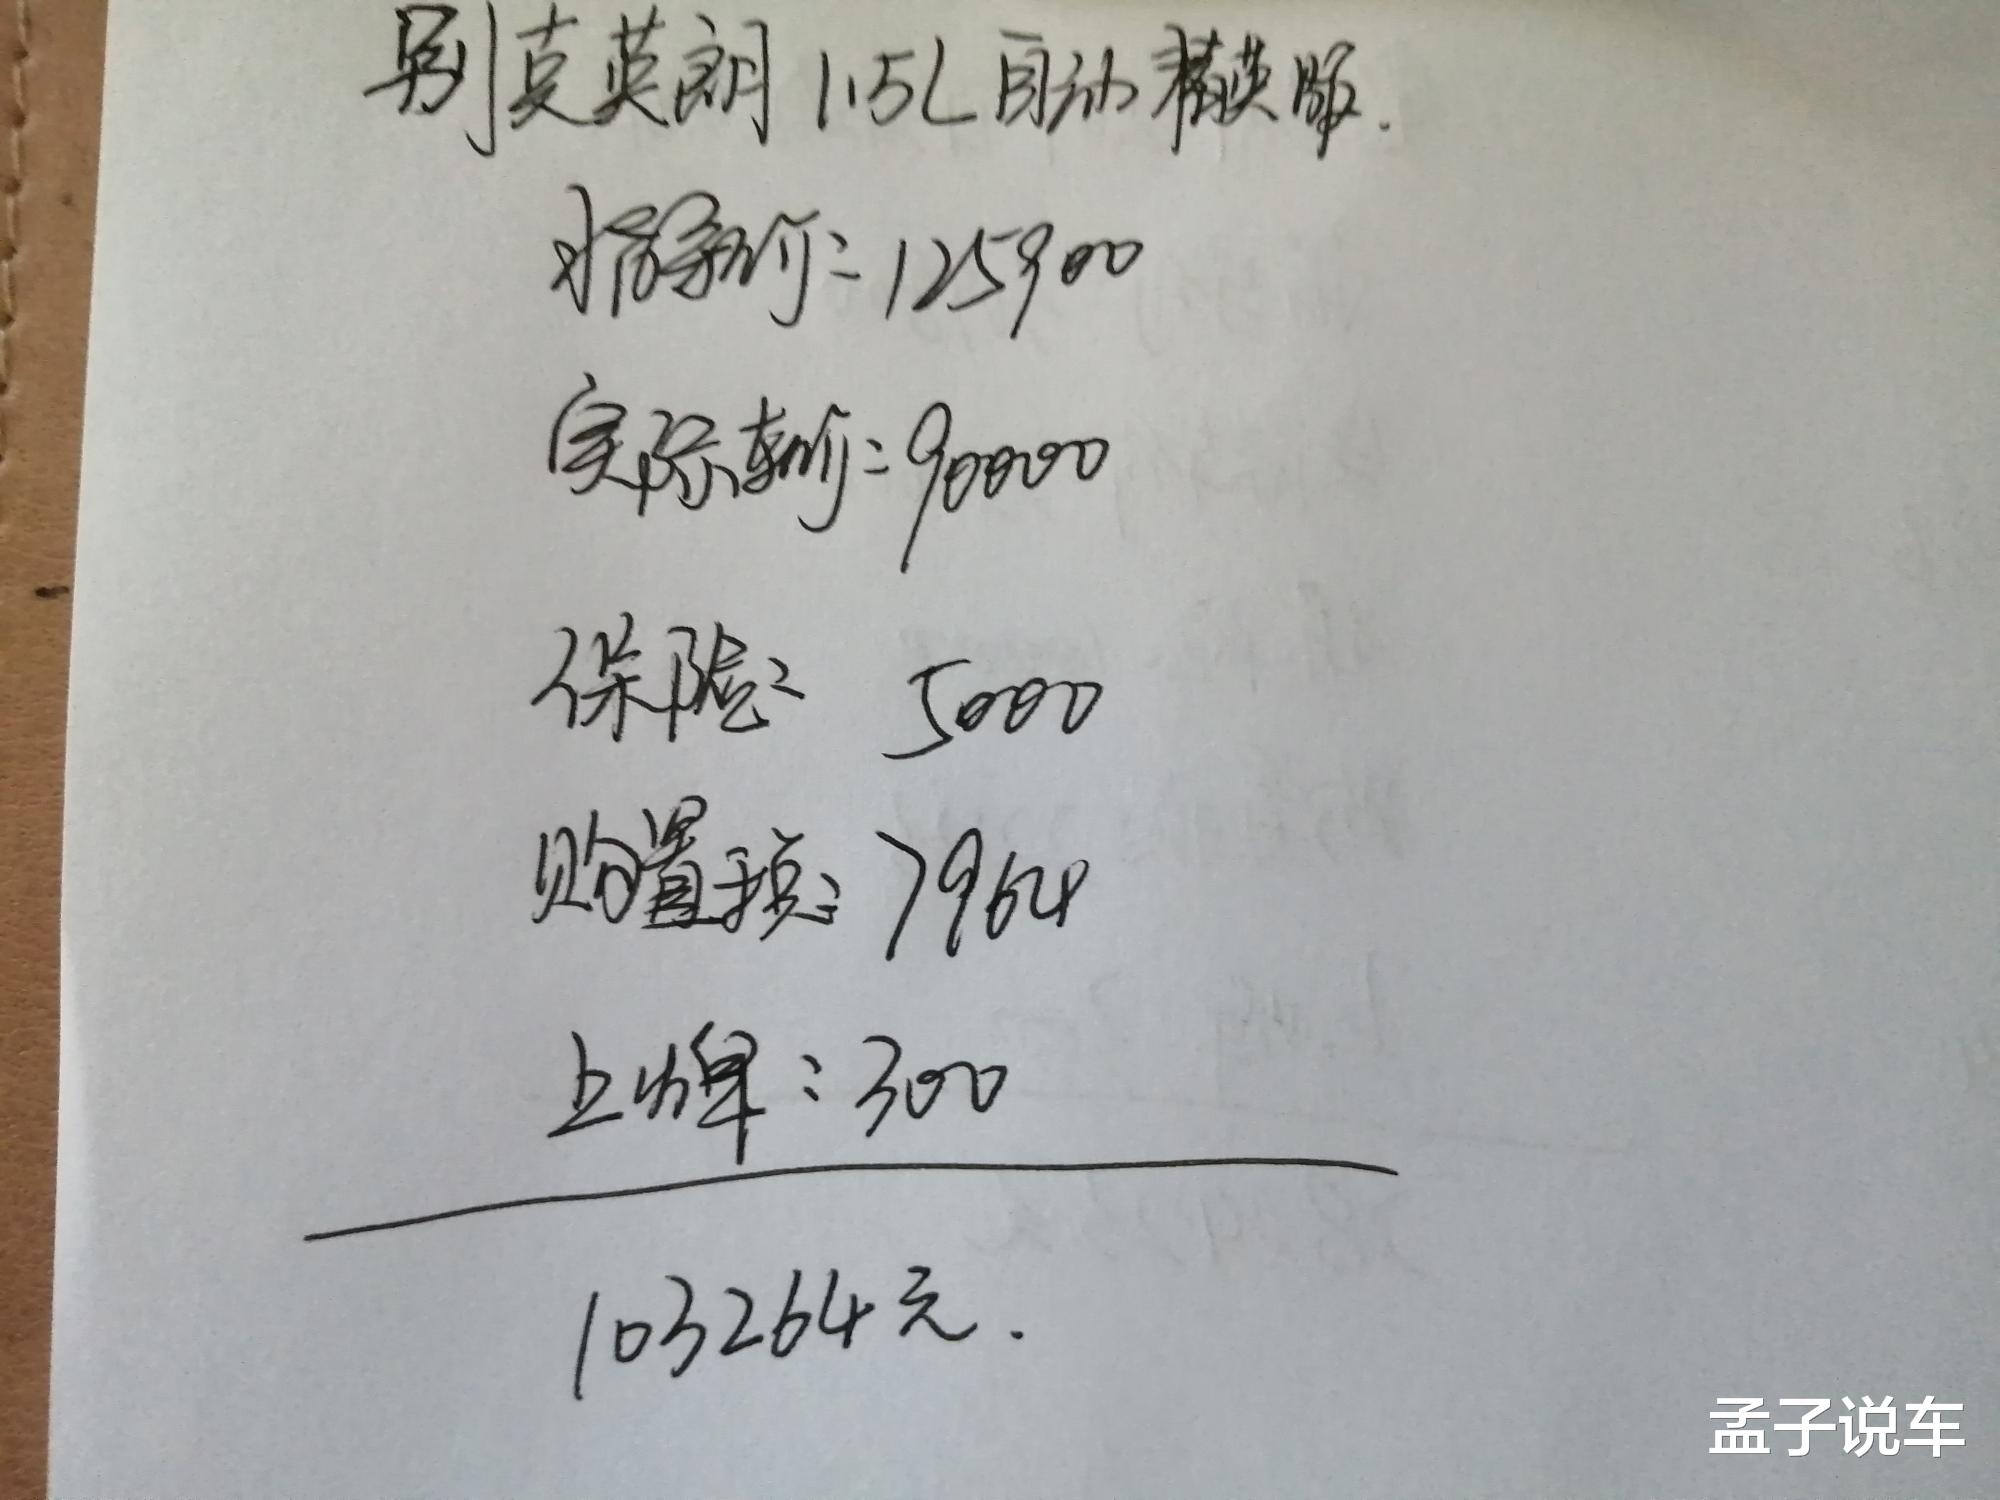 别克英朗 1.5L 自动精英版.
指导价: 125900
实际车价: 90000
保险: 5000
购置税: 7964
上牌: 300
103264元.
孟子说车